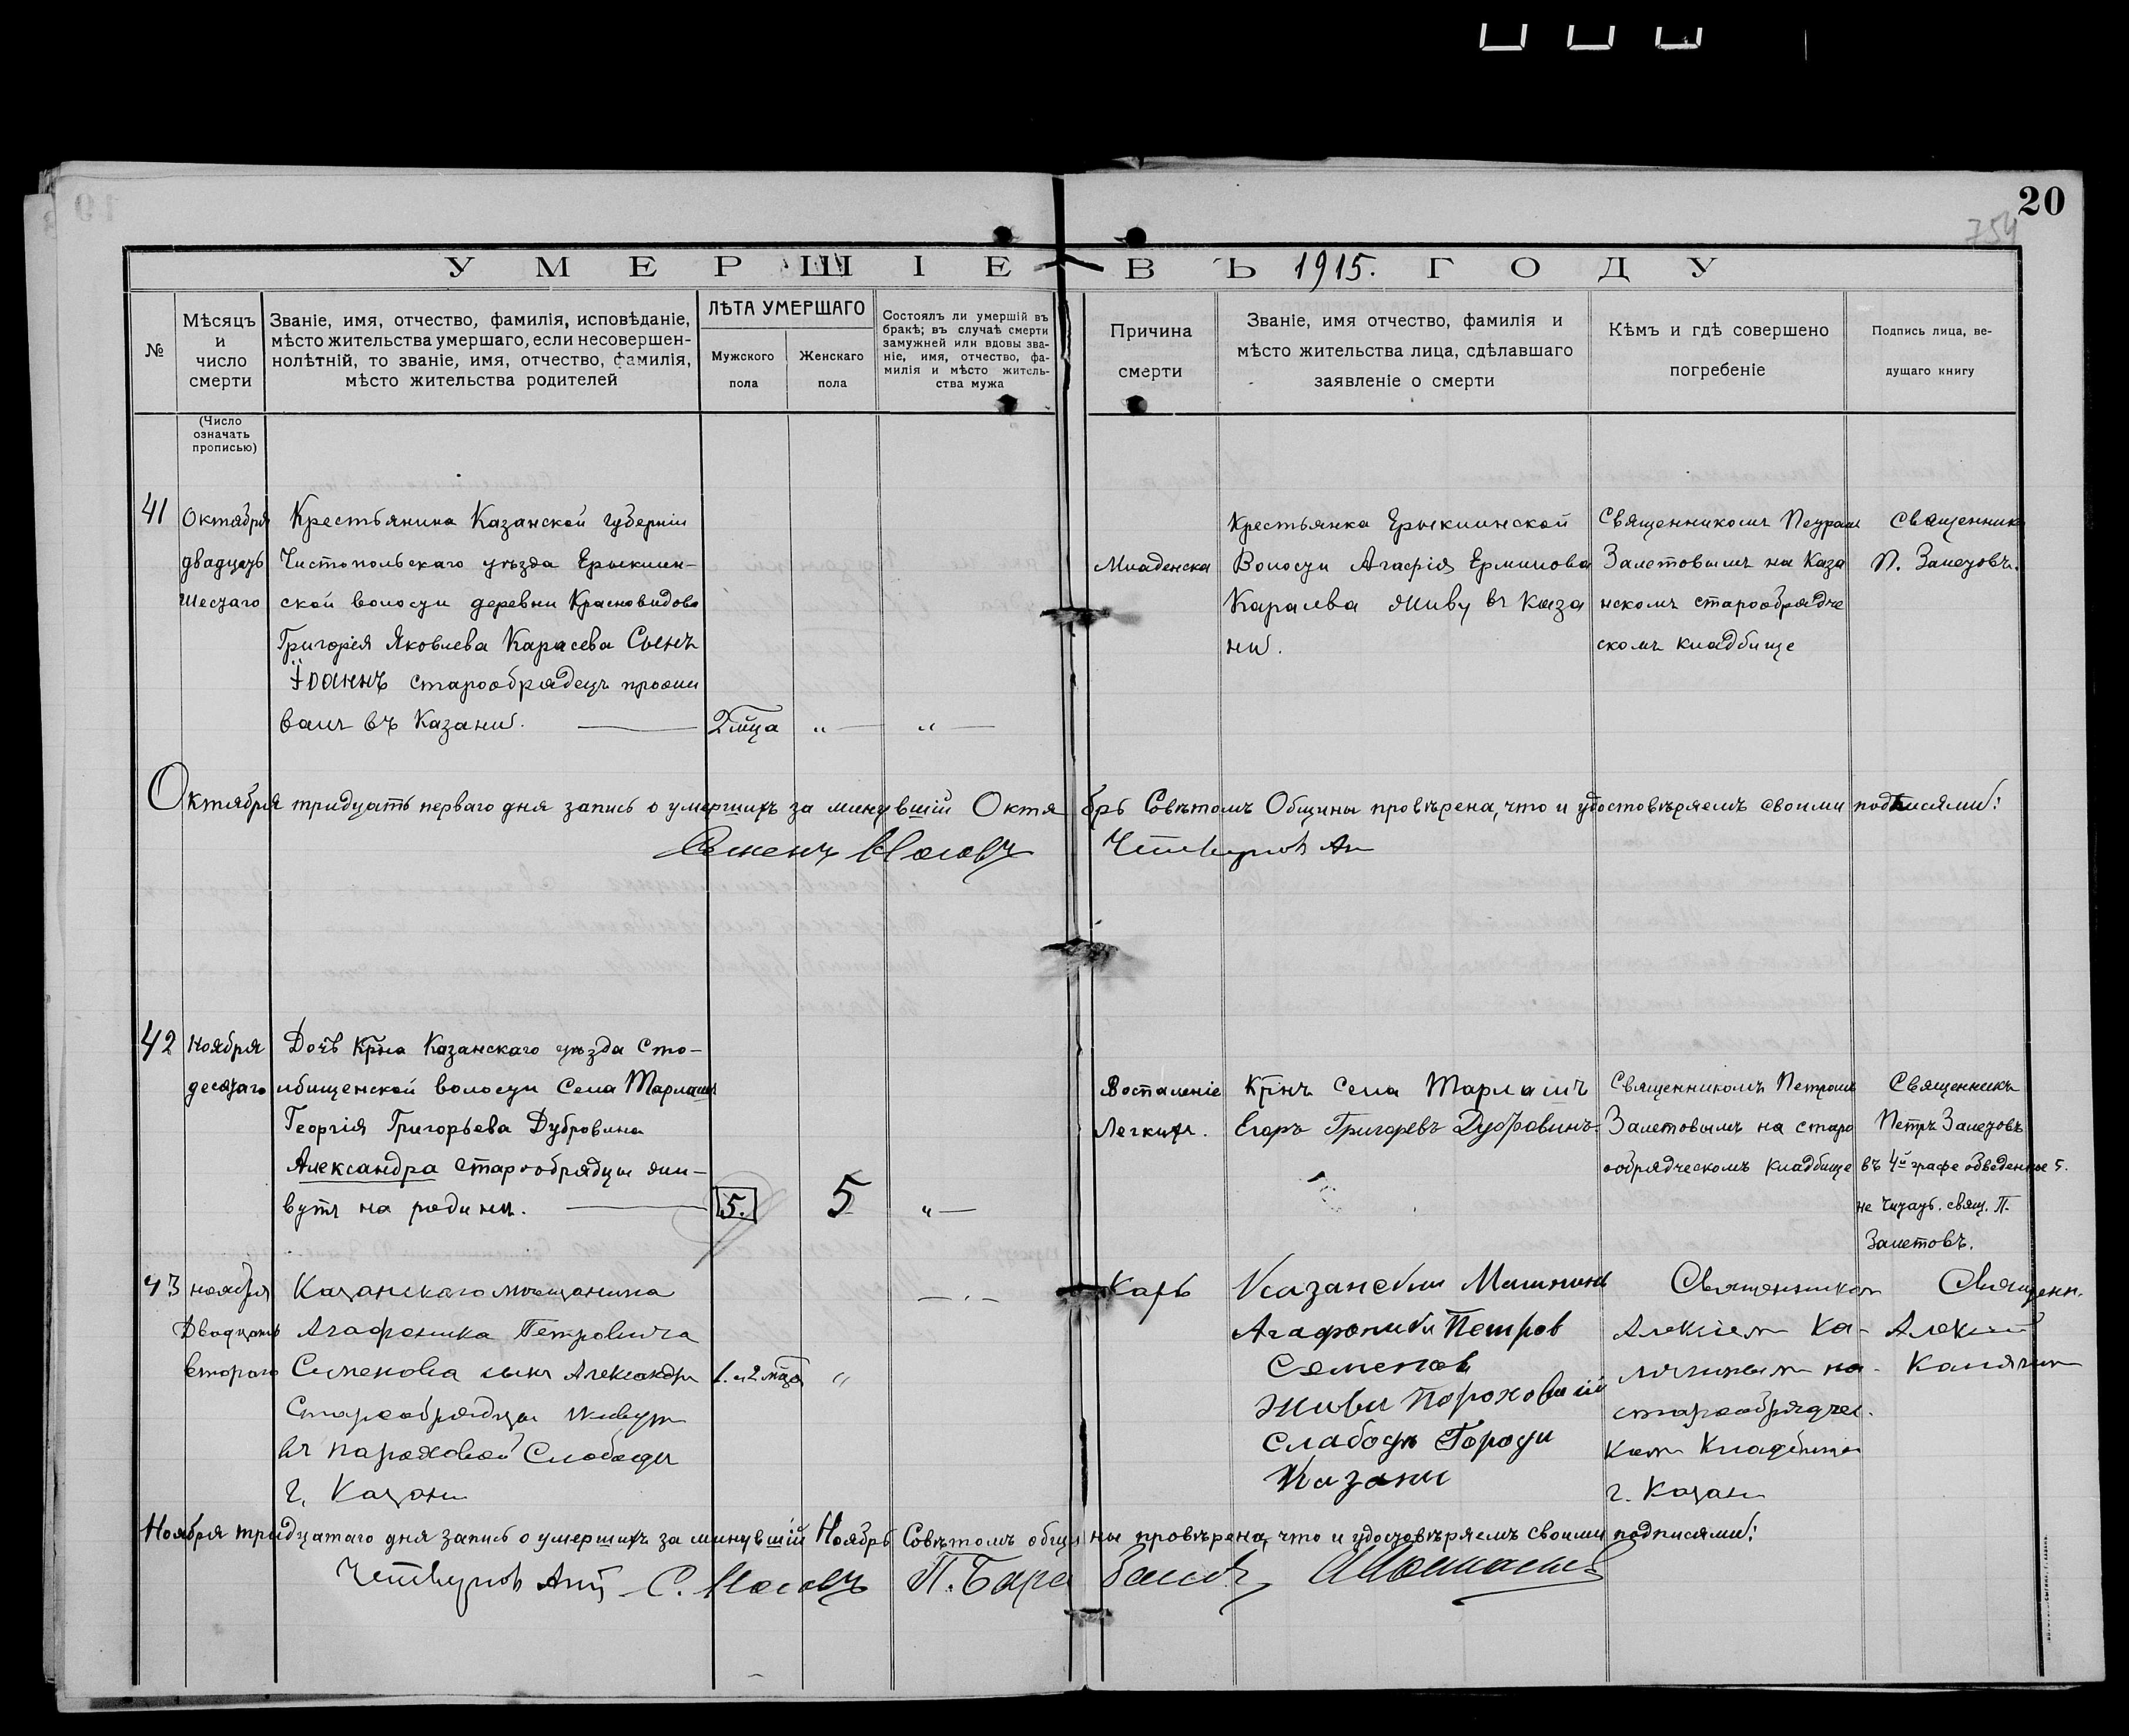 20
754
УМЕРШІЕ ВЪ 1915. ГОДУ
№
Мѣсяцъ
и
число
смерти
(Число
означать
прописью)
Званіе, имя, отчество, фамилія, исповѣданіе,
мѣсто жительства умершаго, если несовершен-
нолѣтній, то званіе, имя, отчество, фамилія,
мѣсто жительства родителей
ЛѢТА УМЕРШАГО
Мужского
пола
Женскаго
пола
Состоялъ ли умершій въ
бракѣ; въ случаѣ смерти
замужней или вдовы зва-
ніе, имя, отчество, фа-
милія и мѣсто житель-
ства мужа
Причина
смерти
Званіе, имя отчество, фамилія и
мѣсто жительства лица, сдѣлавшаго
заявленіе о смерти
Кѣмъ и гдѣ совершено
погребеніе
Подпись лица, ве-
дущаго книгу
41
Октября
двадцать
шестаго
Крестьянина Казанской губерніи
Чистопольскаго уѣзда Ерыклин-
ской волости деревни Красновидово
Григорія Яковлева Карасева Сынъ
Іоаннъ старообрядецъ прожи
валъ въ Казани.
2 м̃ца
„ —
„ —
Младенска
Крестьянка Ерыклинской
Волости Агафія Ермилова
Карасева живу въ Каза
ни.
Священникомъ Петромъ
Залетовымъ на Каза
нскомъ старообрядче
скомъ кладбище
Священникъ
П. Залетовъ.
Октября тридцать перваго дня запись о умершихъ за минувшій Октя брь Совѣтомъ Общины провѣрена, что и удостовѣряемъ своими подписями:
Семенъ
42
Ноября
десятаго
Дочь Кр̃на Казанскаго уѣзда Сто-
лбищенской волости Села Тарлаши
Георгія Григорьева Дубровина
Александра старообрядцы жи-
вутъ на родинѣ.
5.
5
„ —
Воспаленіе
Легкихъ.
Кр̃нъ села Тарлашъ
Егоръ Григоревъ Дубровинъ
Священникомъ Петромъ
Залетовымъ на старо
обрядческомъ кладбище
Священникъ
Петръ Залетовъ
въ 4й графе обведенное 5.
не читать. свящ. П.
Залетовъ.
43
ноября
Двадцать
второго
Казанскаго мѣщанина
Агафоника Петровича
Семенова сынъ Александръ
Старообрядцы живутъ
въ пороховой Слободѣ
г. Казани
1. и 2 м̃ца
„
— „ —
Карь
Казански Мешанин
Агафоники Петров
Семенов
Живи Пороховый
Слабоды Городи
Казани
Священником
Алексіем Ка-
лягиным на-
старообрядчес.
ком Кладбище
г. Казан
Священн.
Алексій
Калягин
Ноября тридцатаго дня запись о умершихъ за минувшій Ноябрь Совѣтомъ общи ны провѣрена, что и удостовѣряемъ своими подписями: